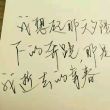 我想起那天夕阳
下的奔跑，那是
我逝去的青春